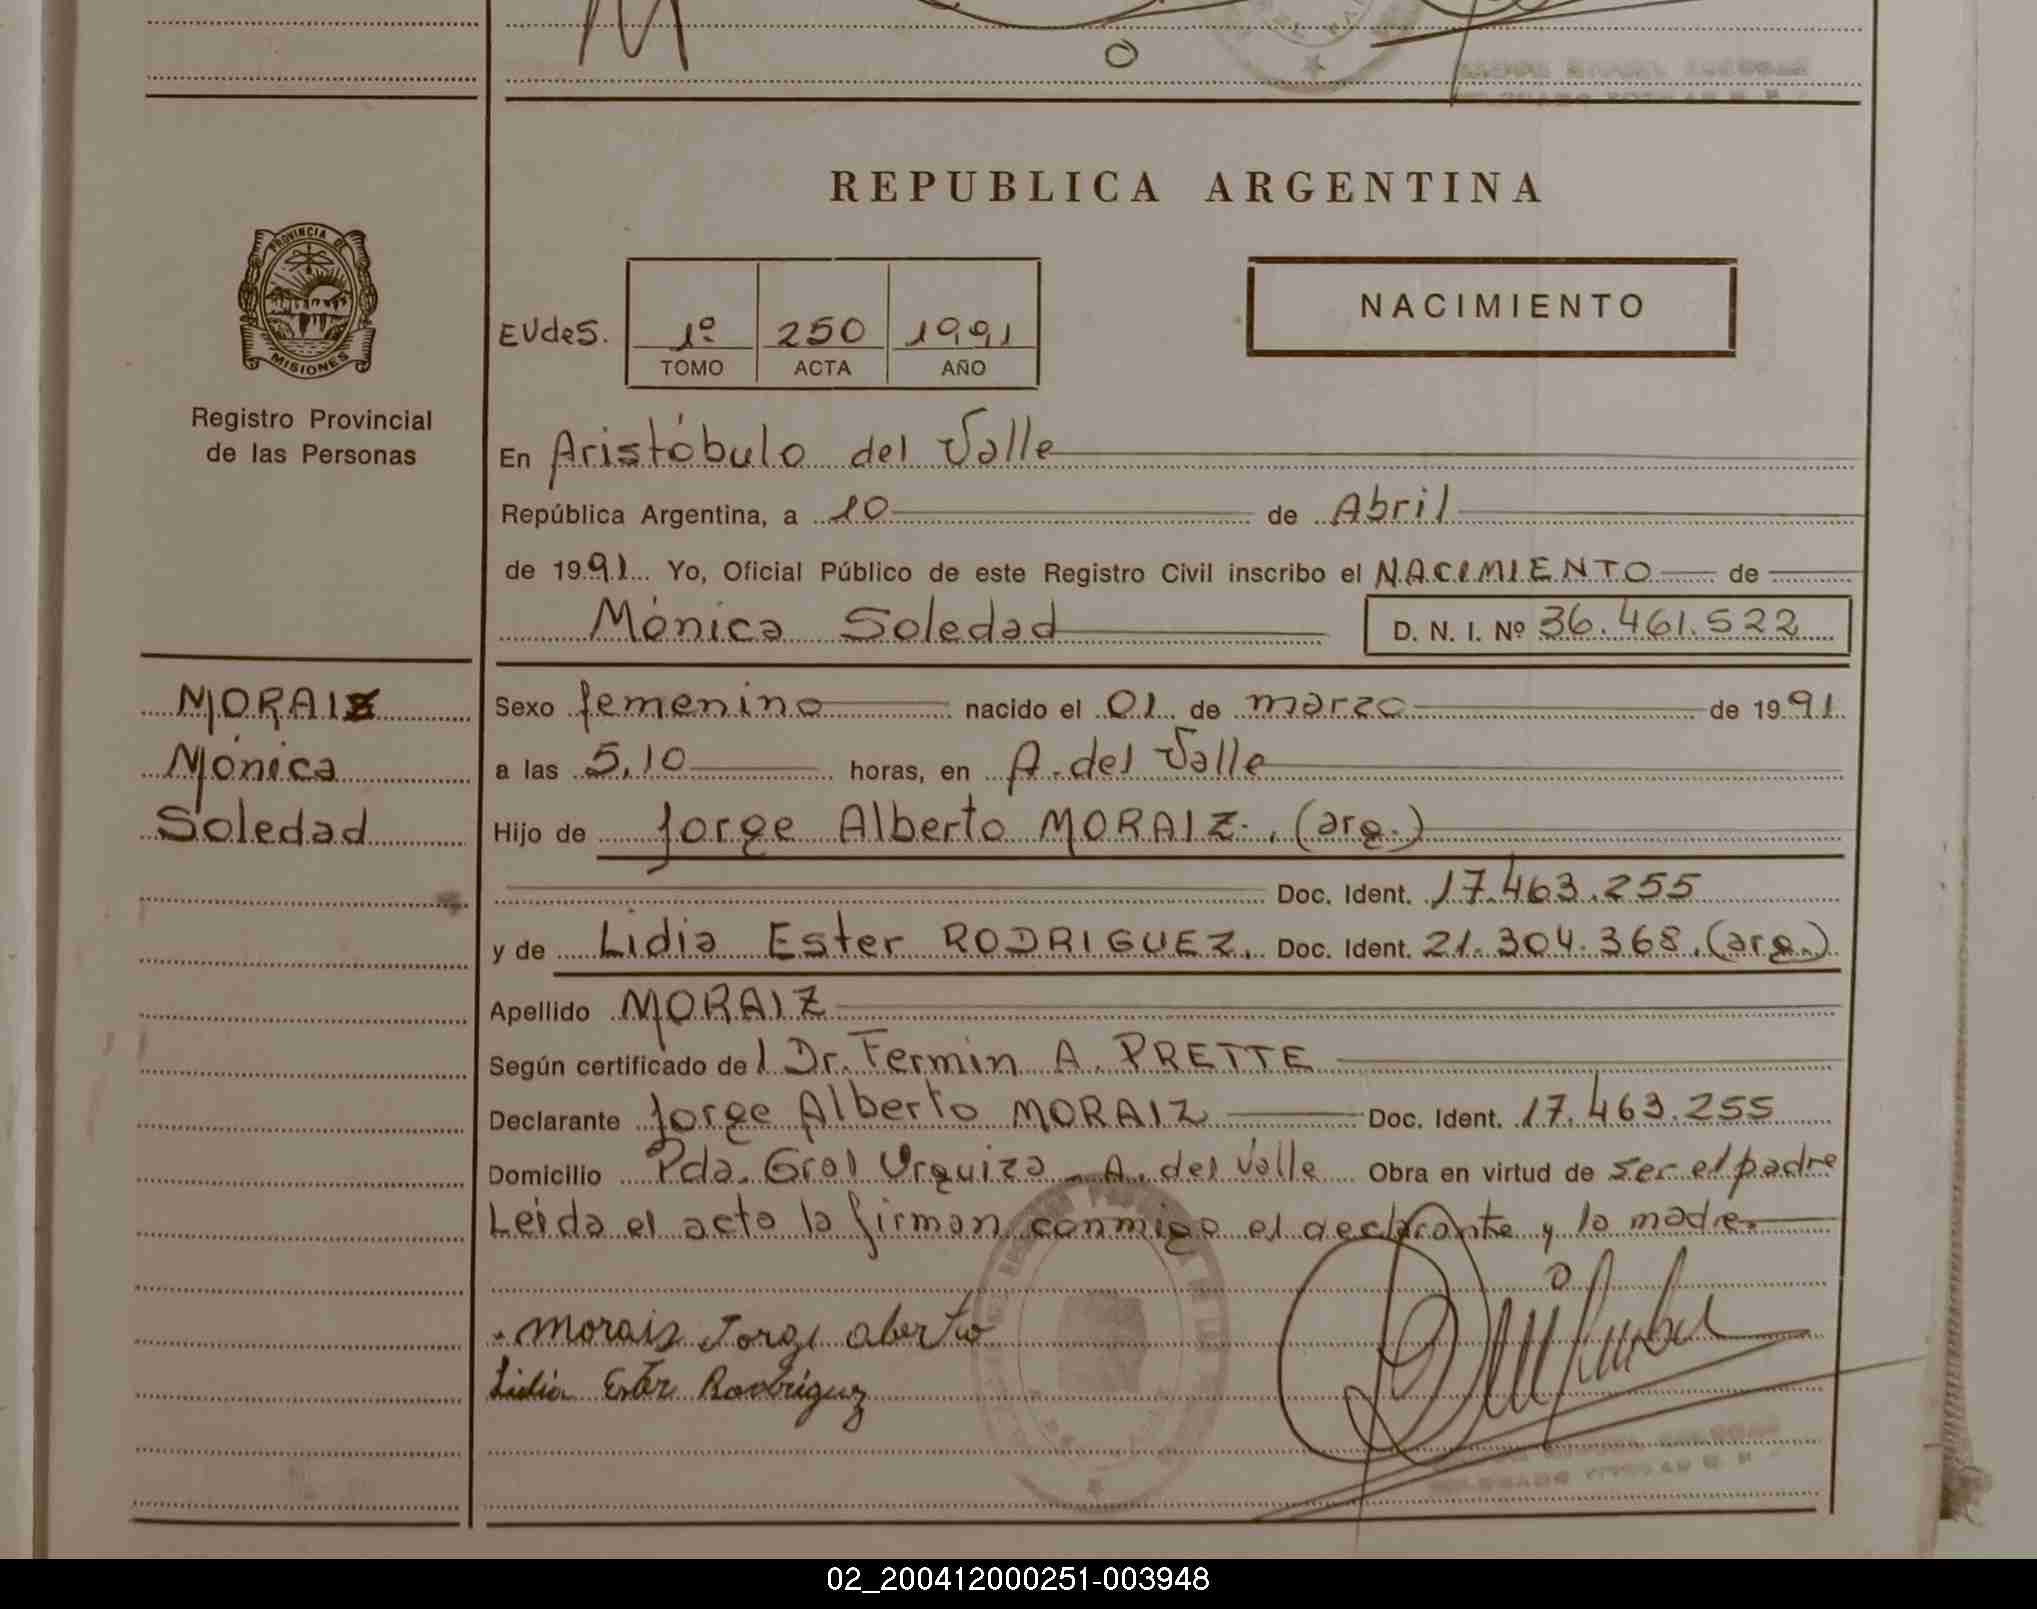 REPUBLICA ARGENTINA
PROVINCIA DE
MISIONES
Registro Provincial
de las Personas
NACIMIENTO
EVdeS. 1º 250 1991
TOMO ACTA AÑO
En Aristóbulo del Valle
República Argentina, a 10 de Abril
de 1991 Yo, Oficial Público de este Registro Civil inscribo el NACIMIENTO de
Mónica Soledad D. N. I. Nº 36.461.522
MORAIZ
Mónica
Soledad
Sexo femenino nacido el 01 de marzo de 1991
a las 5,10 horas, en A. del Valle
Hijo de Jorge Alberto MORAIZ., (arg.)
Doc. Ident. 17.463.255
y de Lidia Ester RODRIGUEZ. Doc. Ident. 21.304.368.(arg.)
Apellido MORAIZ
Según certificado del Dr. Fermin A. PRETTE
Declarante Jorge Alberto MORAIZ Doc. Ident. 17.463.255
Domicilio Pda. Gral Urquiza - A. del Valle Obra en virtud de ser el padre
Leída el acta la firman conmigo el declarante y la madre.
Moraiz Jorge aberto
Lidia Ester Rodriguez
02_200412000251-003948